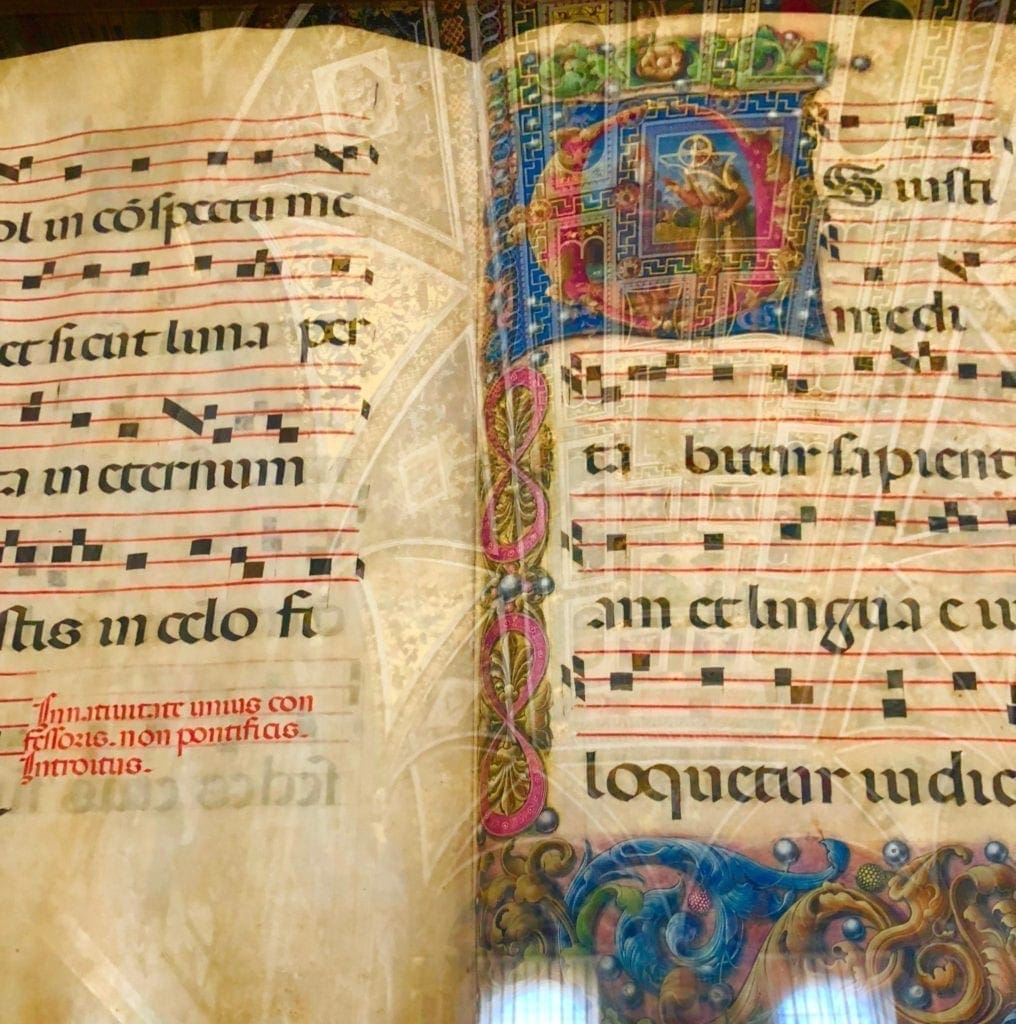 ol in cōspectu me
et sicut luna per
ta in eternum
stis in celo fi
In natiuitate unius con
fessoris. non pontificis.
Introitus.
OS iusti
medi
ta bitur sapient
am et lingua e iu
loquetur iudic